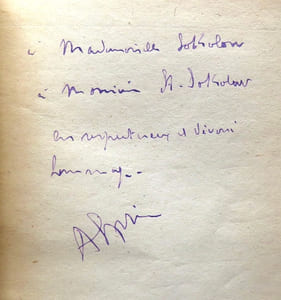 à Mademoiselle Sokolow
à Monsieur St. Sokolow
en respectueux et dévoué
hommage